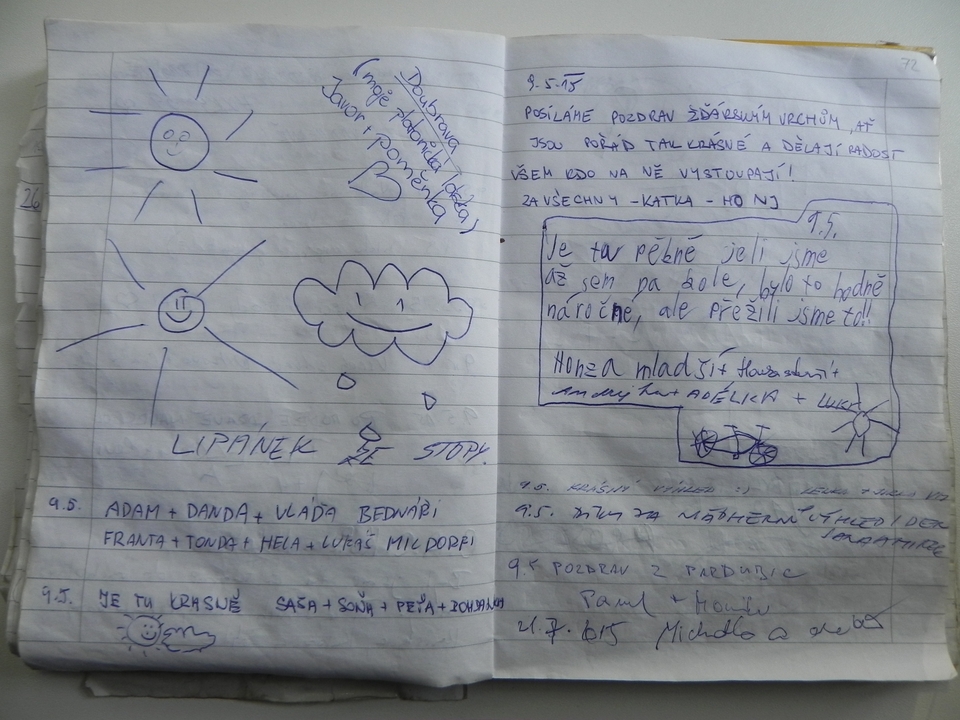 26
Doubrava
(moje platonická láska)
Javor + poměnka
LIPÁNEK ZE STOPY.
9.5. ADAM + DANDA + VLÁĎA BEDNÁŘI
FRANTA + TONDA + HELA + LUKÁŠ MILDORFI
9.5. JE TU KRÁSNĚ SAŠA + SOŇA + PEŤA +
72
9.5.15
POSÍLÁME POZDRAV ŽĎÁRSKÝM VRCHŮM, AŤ
JSOU POŘÁD TAK KRÁSNÉ A DĚLAJÍ RADOST
VŠEM KDO NA NĚ VYSTOUPAJÍ!
ZA VŠECHNY - KATKA - HONJ
9.5.
Je tu pěbně jeli jsme
až sem na kole, bylo to hodně
náročné, ale přežili jsme to!!
Honza mladší + Honza starší +
+ ADÉLKA +
9.5. KRÁSNÝ VÝHLED :)
9.5. DÍKY ZA NÁDHERNÝ VÝHLED I DEN
9.5 POZDRAV Z PARDUBIC
Pavel +
21.7.2015 a